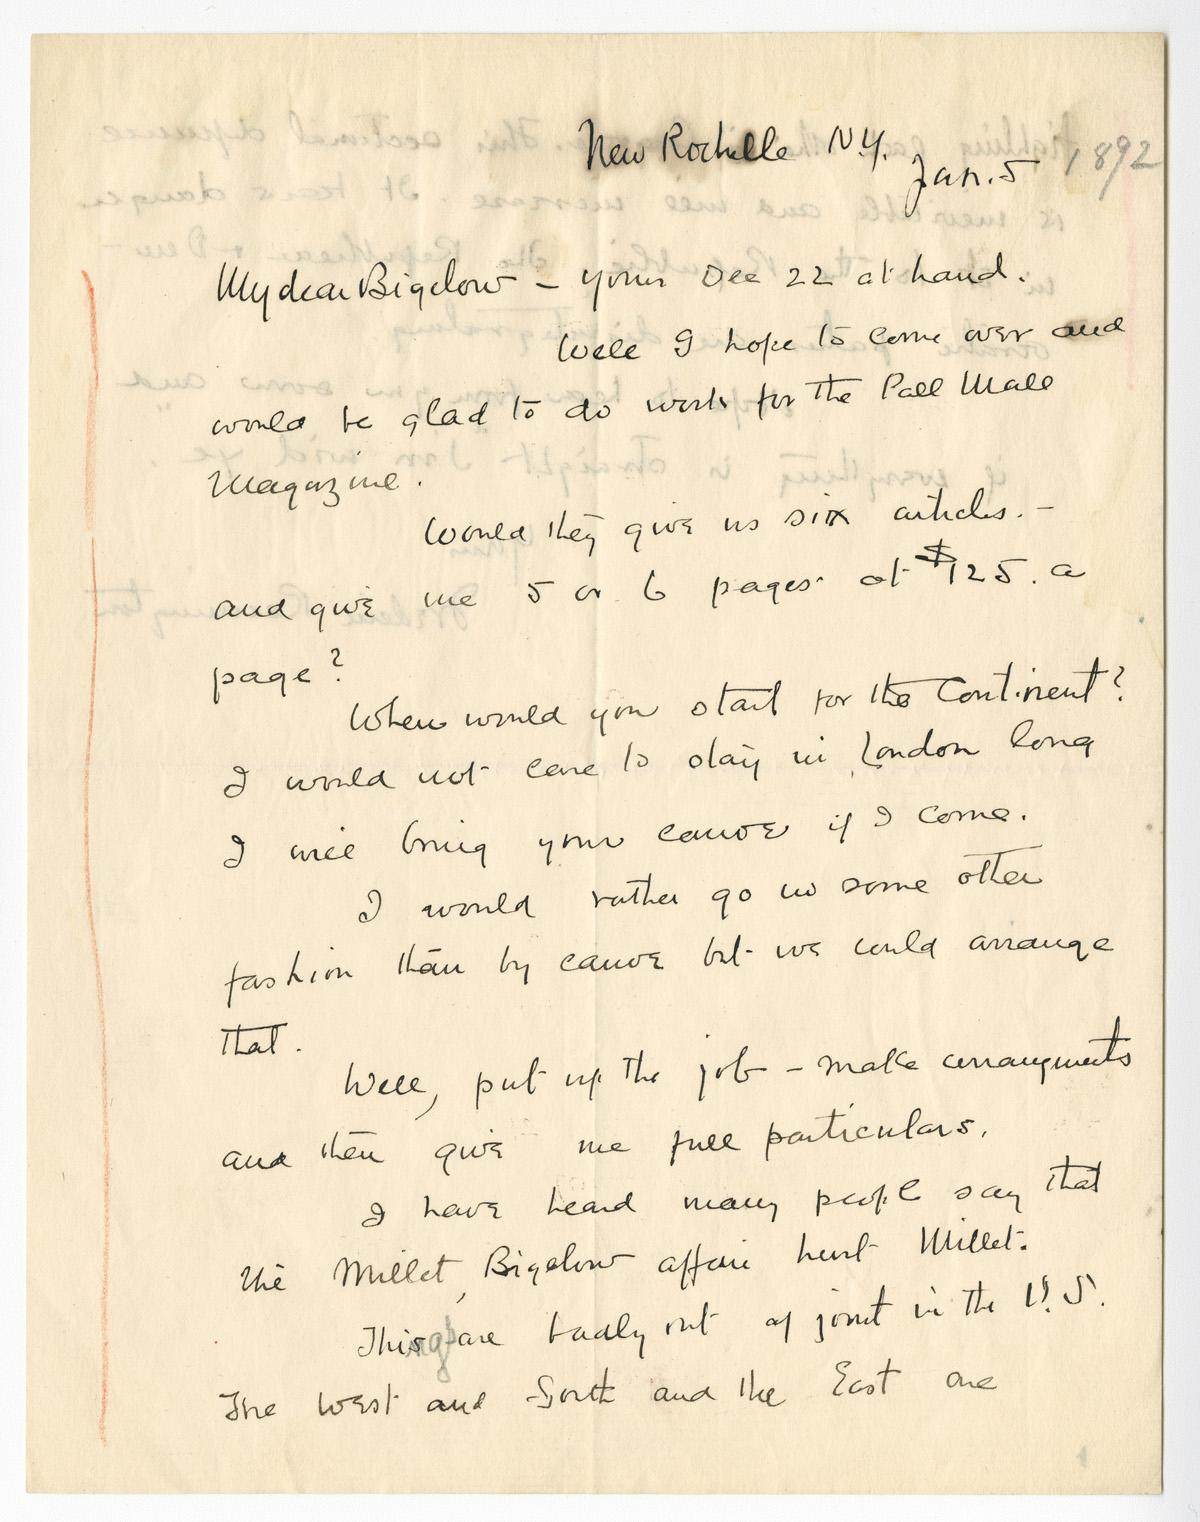 New Rochelle N.Y.
Jan. 5 1892
My dear Bigelow – yours Dec 22 at hand.
Well I hope to come over and
would be glad to do work for the Pall Mall
Magazine.
Would they give us six articles. –
and give me 5 or 6 pages at $125. a
page?
When would you start for the Continent?
I would not care to stay in London long
I will bring your canoe if I come.
I would rather go in some other
fashion than by canoe but we could arrange
that.
Well, put up the job – make arrangments
and then give me full particulars.
I have heard many people say that
the Millet, Bigelow affair hurt Millet.
Things are badly out of joint in the U.S.
The West and South and the East are